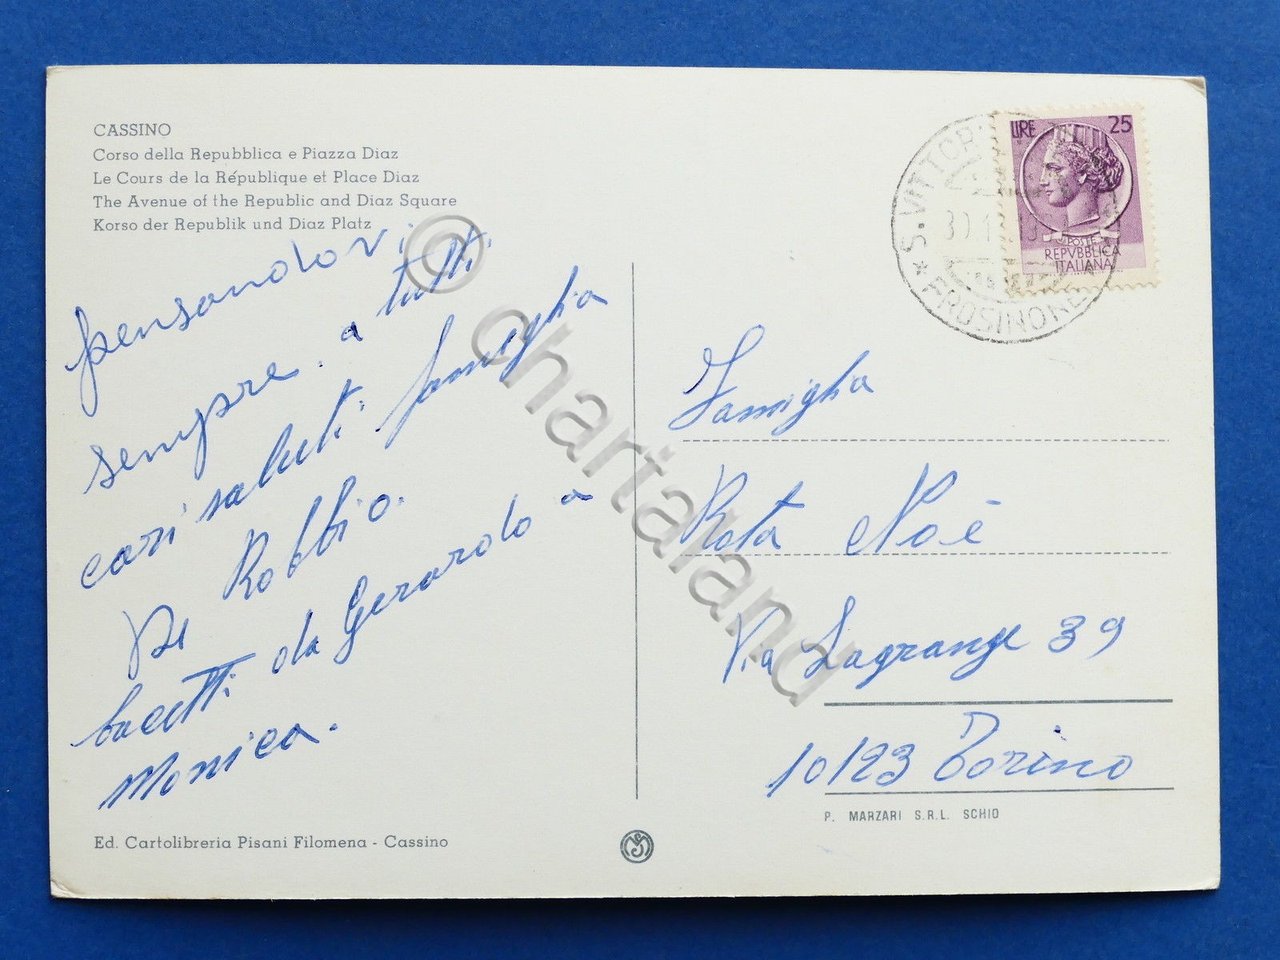 CASSINO
Corso della Repubblica e Piazza Diaz
Le Cours de la République et Place Diaz
The Avenue of the Republic and Diaz Square
Korso der Republik und Diaz Platz
pensandovi
sempre a tutti
cari saluti famiglia
De Robbio.
bacetti da Gerardo a
Monica.
Ed. Cartolibreria Pisani Filomena - Cassino
LIRE 25
POSTE
REPVBBLICA
ITALIANA
* FROSINONE
Famiglia
Rota Noè
Via Lagrange 39
10123 Torino
P. MARZARI S.R.L. SCHIO
© chartaland